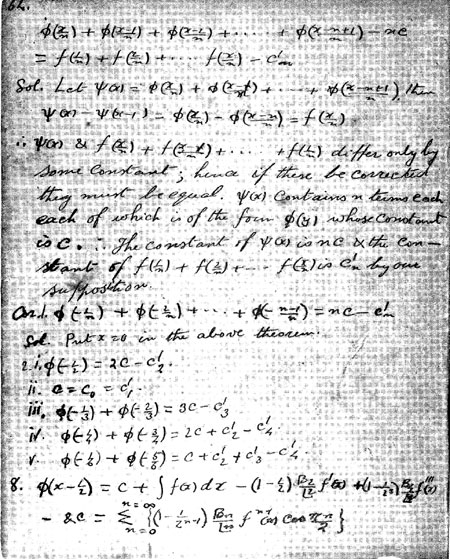 62.
φ(x/n) + φ((x-1)/n) + φ((x-2)/n) + ...... + φ((x-n+1)/n) - nc
= f(1/n) + f(2/n) + ...... f(x/n) - c'n
Sol. Let ψ(x) = φ(x/n) + φ((x-1)/n) + ... + φ((x-n+1)/n), then
ψ(x) - ψ(x-1) = φ(x/n) - φ((x-n)/n) = f(x/n).
∴ ψ(x) & f(x/n) + f((x-1)/n) + ...... + f(1/n) differ only by
some constant; hence if these be corrected
they must be equal. ψ(x) contains n terms each
each of which is of the form φ(y) whose constant
is c. ∴ The constant of ψ(x) is nc & the con-
stant of f(1/n) + f(2/n) + ... f(x/n) is c'n by our
supposition.
Cor. 1. φ(-1/n) + φ(-2/n) + ... + φ(-(n-1)/n) = nc - c'n
Sol. Put x = 0 in the above theorem.
2. i. φ(-1/2) = 2c - c'2.
ii. c = c0 = c'1.
iii. φ(-1/3) + φ(-2/3) = 3c - c'3
iv. φ(-1/4) + φ(-3/4) = 2c + c'2 - c'4.
v. φ(-1/6) + φ(-5/6) = c + c'2 + c'3 - c'6
8. φ(x-1/2) = c + ∫ f(x) dx - (1-1/2) B2/|2 f'(x) + (1-1/2³) B4/|4 f'''(x)
- &c = Σ n=0 n=∞ {(1 - 1/2^(n-1)) Bn/|n f^(n-1)(x) cos πn/2}